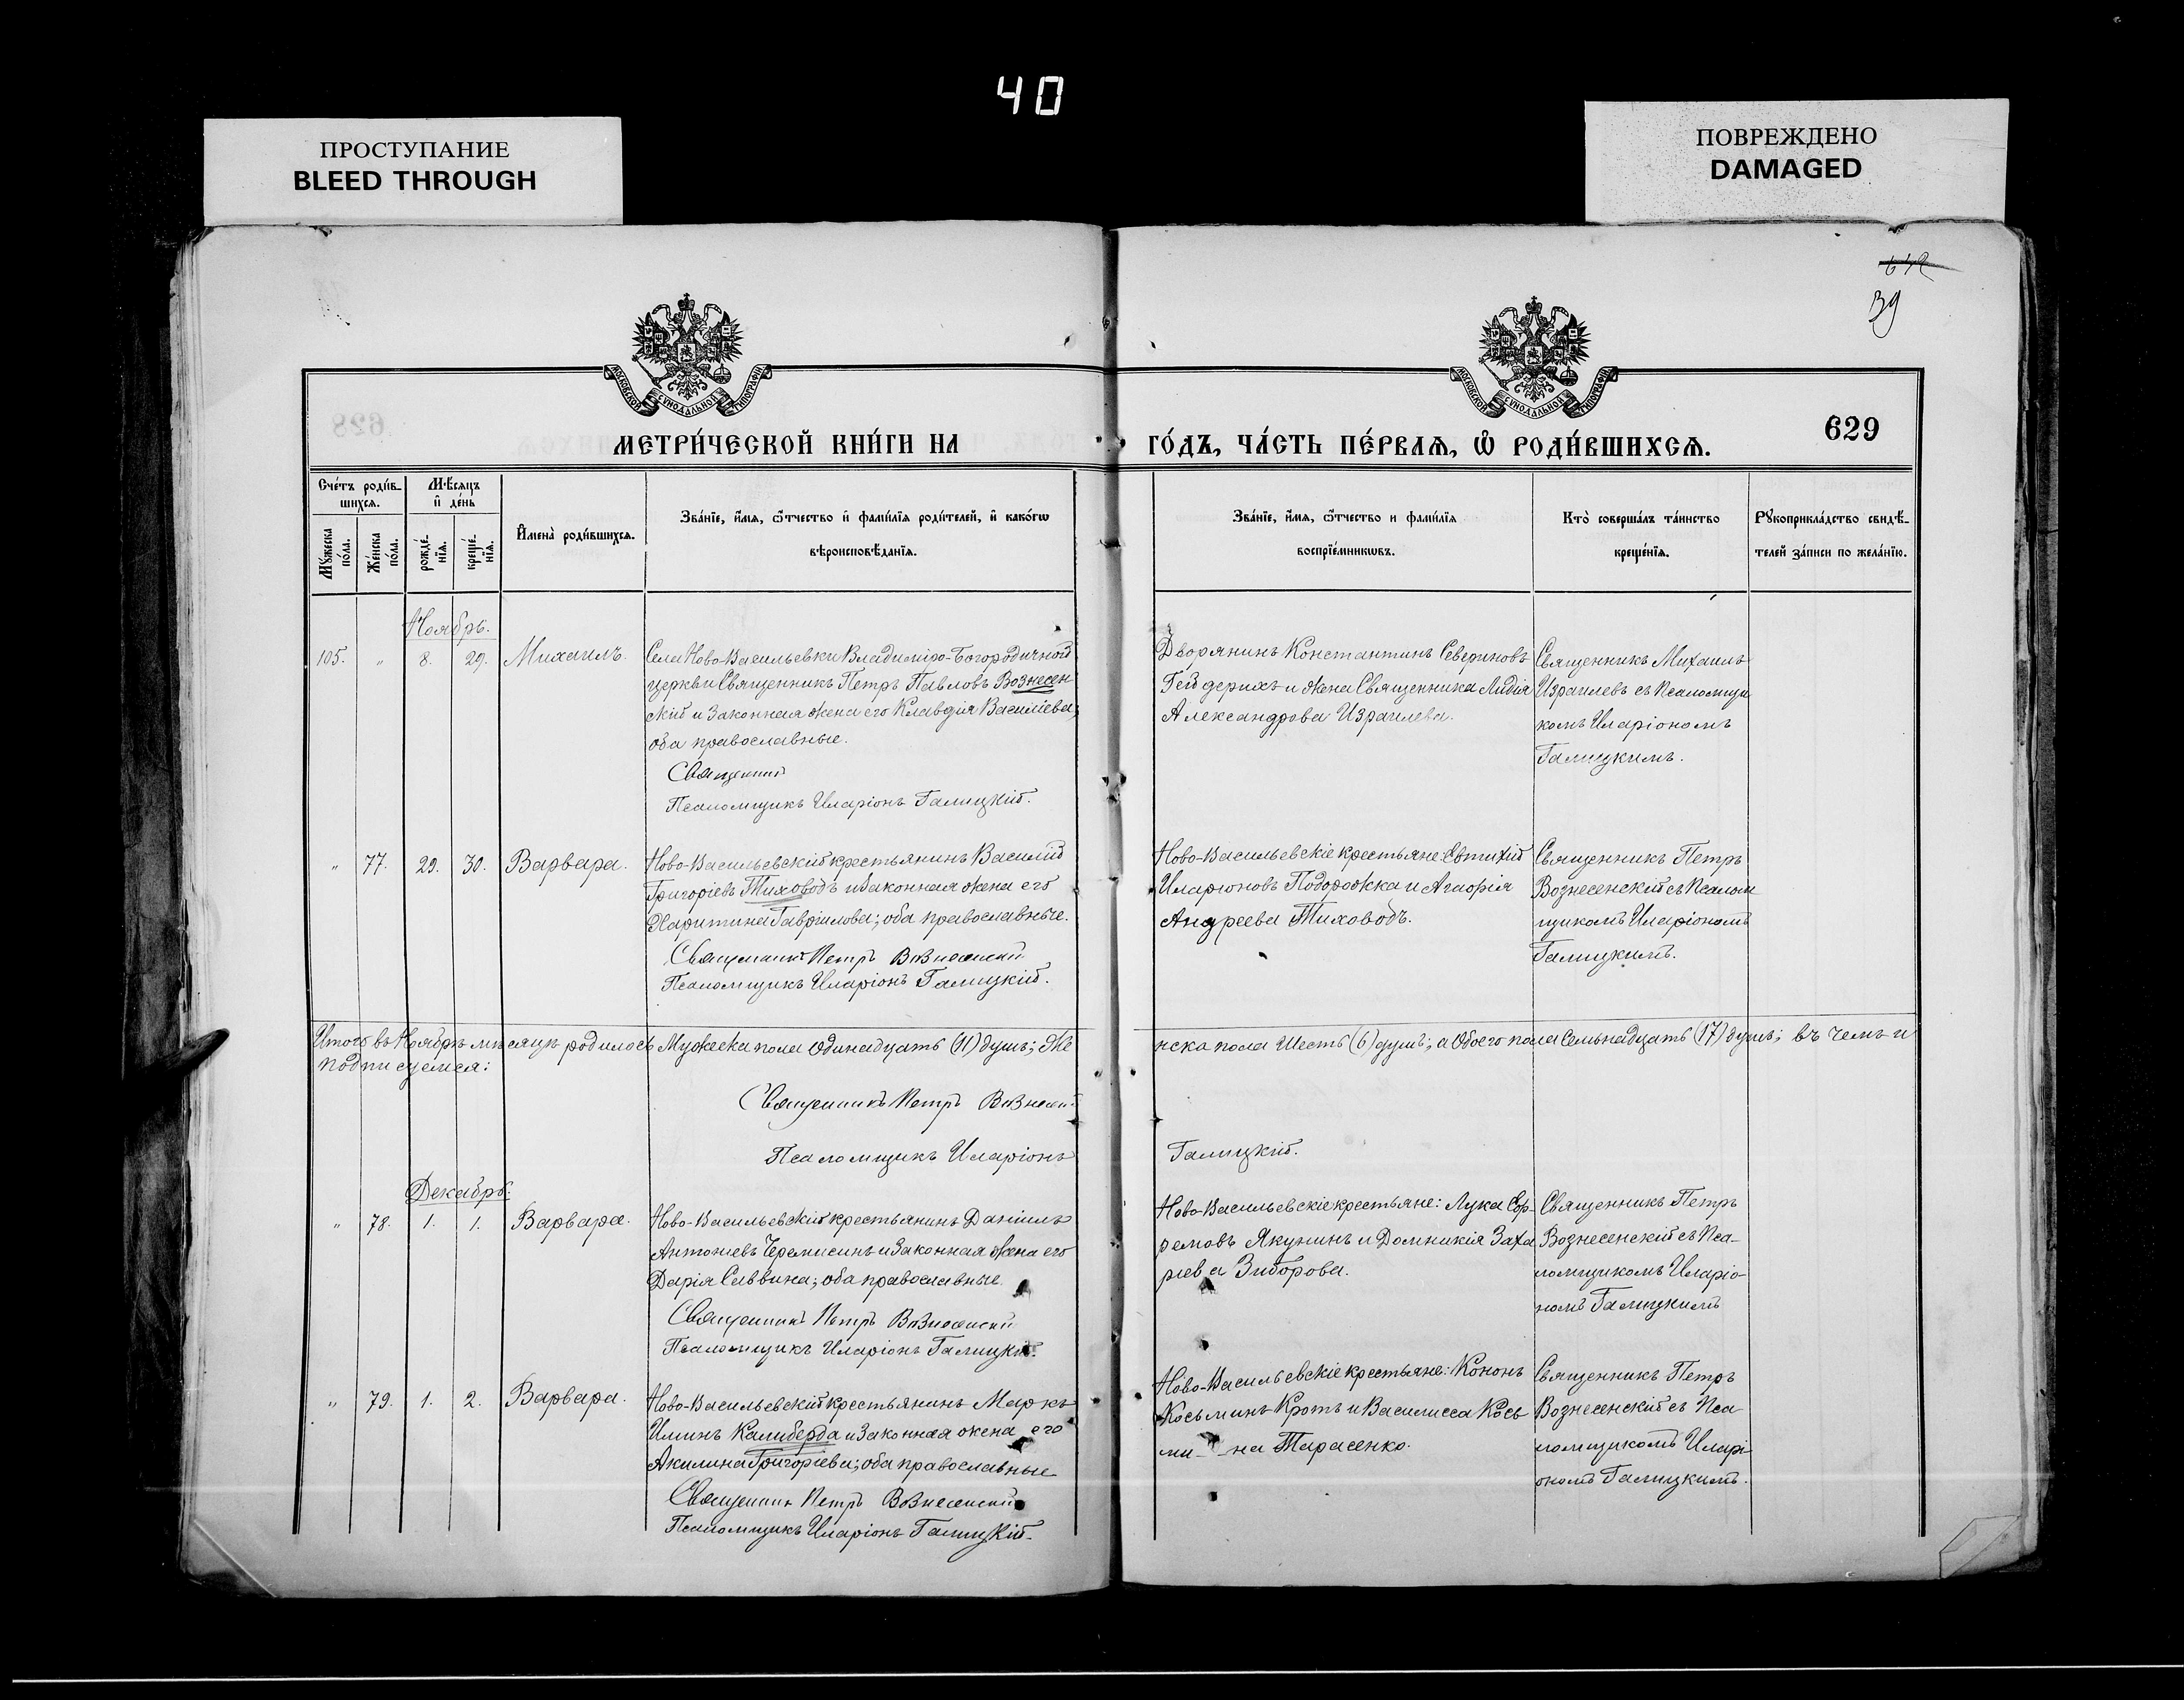 40
ПРОСТУПАНИЕ
BLEED THROUGH
ПОВРЕЖДЕНО
DAMAGED
39
МОСКОВСКОЙ СУНОДАЛЬНОЙ ТИПОГРАФІИ
МОСКОВСКОЙ СУНОДАЛЬНОЙ ТИПОГРАФІИ
629
МЕТРИ́ЧЕСКОЙ КНИ́ГИ НА ГО́ДЪ, ЧА́СТЬ ПЕ́РВАѦ, Ѡ РОДИ́ВШИХСѦ.
Сче́тъ роди́в-
шихсѧ.
Мꙋ́жеска по́ла.
Же́нска по́ла.
Мѣ́сѧцъ
и҆ де́нь
рожде́-нїѧ.
креще́-нїѧ.
И҆мена̀ роди́вшихсѧ.
Зва́нїе, и҆́мѧ, ѻ҆́тчество и҆ фами́лїѧ роди́телей, и҆ како́гѡ
вѣроисповѣ́данїѧ.
Зва́нїе, и҆́мѧ, ѻ҆́тчество и фами́лїѧ
воспрїе́мникѡвъ.
Кто̀ соверша́лъ та́инство
креще́нїѧ.
Рꙋкоприкла́дство свидѣ́-
телей за́писи по жела́нїю.
Ноябрь.
105. " 8. 29. Михаилъ.
Села Ново-Васильевки Владиміро-Богородичной
церкви Священникъ Петръ Павловъ Вознесен
скій и законная жена его Клавдія Василіева;
оба православные.
Священник
Псаломщикъ Иларіонъ Галицкій.
Дворянинъ Константинъ Севериновъ
Гейдерихъ и жена Священника Лидія
Александрова Израилева.
Священникъ Михаилъ
Израилевъ съ псаломщи
комъ Иларіономъ
Галицкимъ.
" 77. 29. 30. Варвара.
Ново-Васильевскій крестьянинъ Василій
Григоріевъ Тиховодъ и законная жена его
Харитина Гавріилова; оба православные.
Священникъ Петръ Вознесенскій
Псаломщикъ Иларіонъ Галицкій.
Ново-Васильевскіе крестьяне: Евтихій
Иларіоновъ Подорожка и Агафія
Андреева Тиховодъ.
Священникъ Петръ
Вознесенскій съ псалом
щикомъ Иларіономъ
Галицкимъ.
Итого въ Ноябрѣ мѣсяцѣ родилось Мужеска пола Одинадцать (11) душъ; Же
нска пола Шесть (6) душъ; а Обоего пола Семьнадцать (17) душъ; въ чемъ и
подписуемся:
Священникъ Петръ Вознесенскій
Псаломщикъ Иларіонъ Галицкій.
Декабрь.
" 78. 1. 1. Варвара.
Ново-Васильевскій крестьянинъ Даніилъ
Антоніевъ Черемисинъ и законная жена его
Дарія Саввина; оба православные.
Священникъ Петръ Вознесенскій
Псаломщикъ Иларіонъ Галицкій.
Ново-Васильевскіе крестьяне: Лука Еф-
ремовъ Якунинъ и Домникія Заха
ріева Зиборова.
Священникъ Петръ
Вознесенскій съ Пса-
ломщикомъ Иларіо-
номъ Галицкимъ
" 79. 1. 2. Варвара.
Ново-Васильевскій крестьянинъ Маркъ
Илиинъ Калиберда и законная жена его
Акилина Григоріева; оба православные
Священникъ Петръ Вознесенскій
Псаломщикъ Иларіонъ Галицкій.
Ново-Васильевскіе крестьяне: Кононъ
Косьминъ Кротъ и Василисса Кось
ми- на Тарасенко.
Священникъ Петръ
Вознесенскій съ Пса
ломщикомъ Иларі
ономъ Галицкимъ.